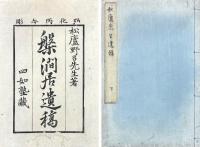 弘化丙午彫
松廬野呂先生著
槃澗居遺稿
四如塾藏
松廬先生遺稿 下